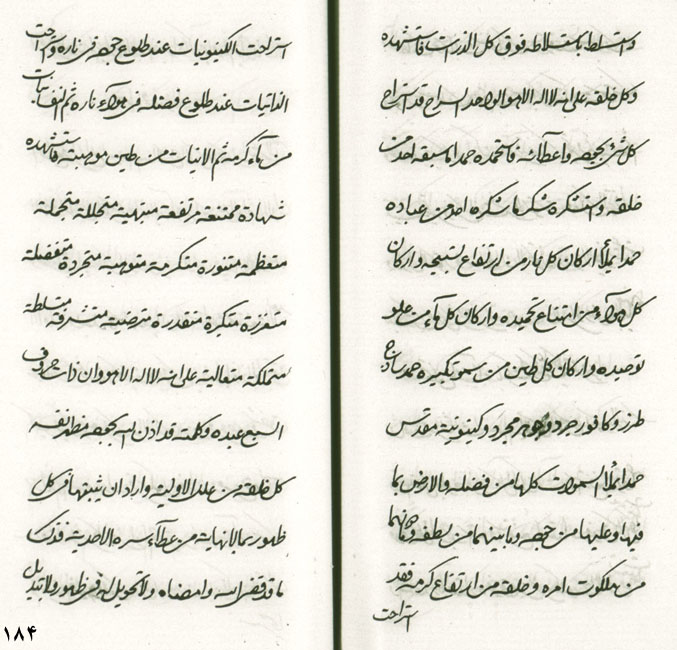 واستسلط باستسلاطه فوق كل الذرات فاستشهده
وكل خلقه على انه لا اله الا هو الواحد السراح قد استراح
كل شئ بحججه واعطائه فاستحمده حمدا ما سبقه احد من
خلقه واستشكره شكرا ما شكره احد من عباده
حمدا يملأ اركان كل نار من ارتفاع تسبيحه واركان
كل هواء من امتناع تحميده واركان كل ماء من علو
توحيده واركان كل طين من سمو تكبيره حمدا ساذج
طرز وكافور جرد وجوهر مجرد وكينونية مقدس
حمدا يملأ السموات كلها من فضله والارض بما
فيها وعليها من حججه وما بينهما من لطفه وما دونهما
من ملكوت امره وخلقه من ارتفاع كرمه فقد
استراحت
استراحت الكينونيات عند طلوع حججه في ناره واستراحت
الذاتيات عند طلوع فضله في هواء ناره ثم النفسانيات
من ماء كرمه ثم الانيات من طين موهبته فاستشهده
شهادة ممتنعة مرتفعة مبتهية متجللة متجملة
متعظمة متنورة متكرمة متوهبة متجردة متفضلة
متعززة متكبرة متقدرة مترضية متشرفة متسلطة
متملكة متعالية على انه لا اله الا هو وان ذات حروف
السبع عبده وكلمته قد اذن الله بحججه مظهر نفسه
كل خلقه من علل الاولية واراد ان يثبتها في كل
ظهور بما لا نهاية من عطاء سره الاحدية فذلك
ما قد قضى الله وامضاه ولا تحويل له في ظهور ولا تبديل
١٨۴